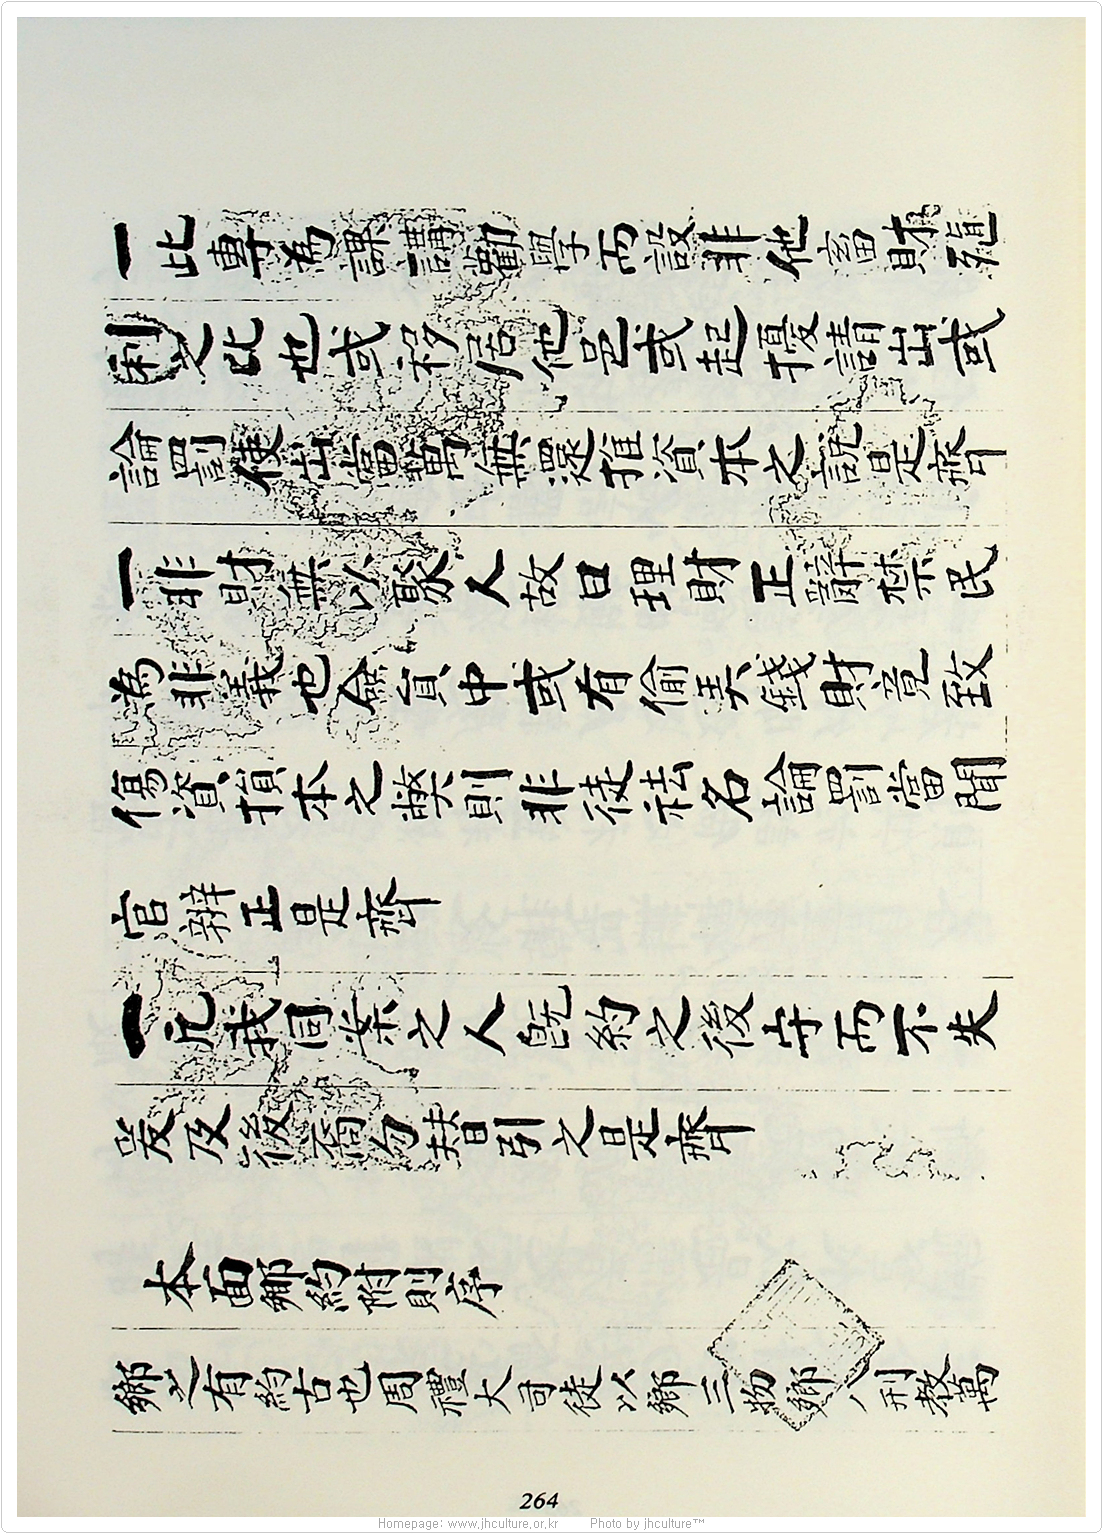 一比專為課講勸學而設非他畜財殖
利之比也或移居他邑或起擾請出或
論罰使出當萬無還推資本之說是齊
一非財無以聚人故曰理財正辭禁民
為非義也僉員中或有偷弄錢財竟致
傷資損本之弊則非徒祛名論罰當聞
官辨正是齊
一凡我同案之人旣約之後守而不失
爰及後裔勿替引之是齊
本面鄕約附則序
鄕之有約古也周禮大司徒以鄕三物鄕八刑教萬
264
Homepage: www.jhculture.or.kr Photo by jhculture™